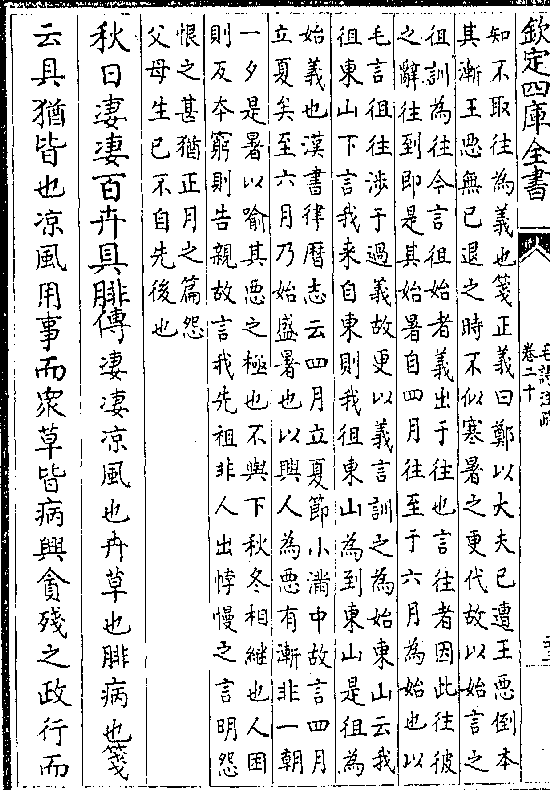 欽定四庫全書
毛詩注疏
卷二十
知不取往為義也箋正義曰鄭以大夫已遭王惡倒本
其漸王惡無已退之時不似寒暑之更代故以始言之
徂訓為往今言徂始者義出于往也言往者因此往彼
之辭往到即是其始暑自四月往至于六月為始也以
毛言徂往涉于過義故更以義言訓之為始東山云我
徂東山下言我來自東則我徂東山為到東山是徂為
始義也漢書律厯志云四月立夏節小滿中故言四月
立夏矣至六月乃始盛暑也以興人為惡有漸非一朝
一夕是暑以喻其惡之極也不與下秋冬相繼也人困
則反本窮則告親故言我先祖非人出悖慢之言明怨
恨之甚猶正月之篇怨
父母生已不自先後也
秋日淒淒百卉具腓傳淒淒涼風也卉草也腓病也箋
云具猶皆也涼風用事而衆草皆病興貪殘之政行而